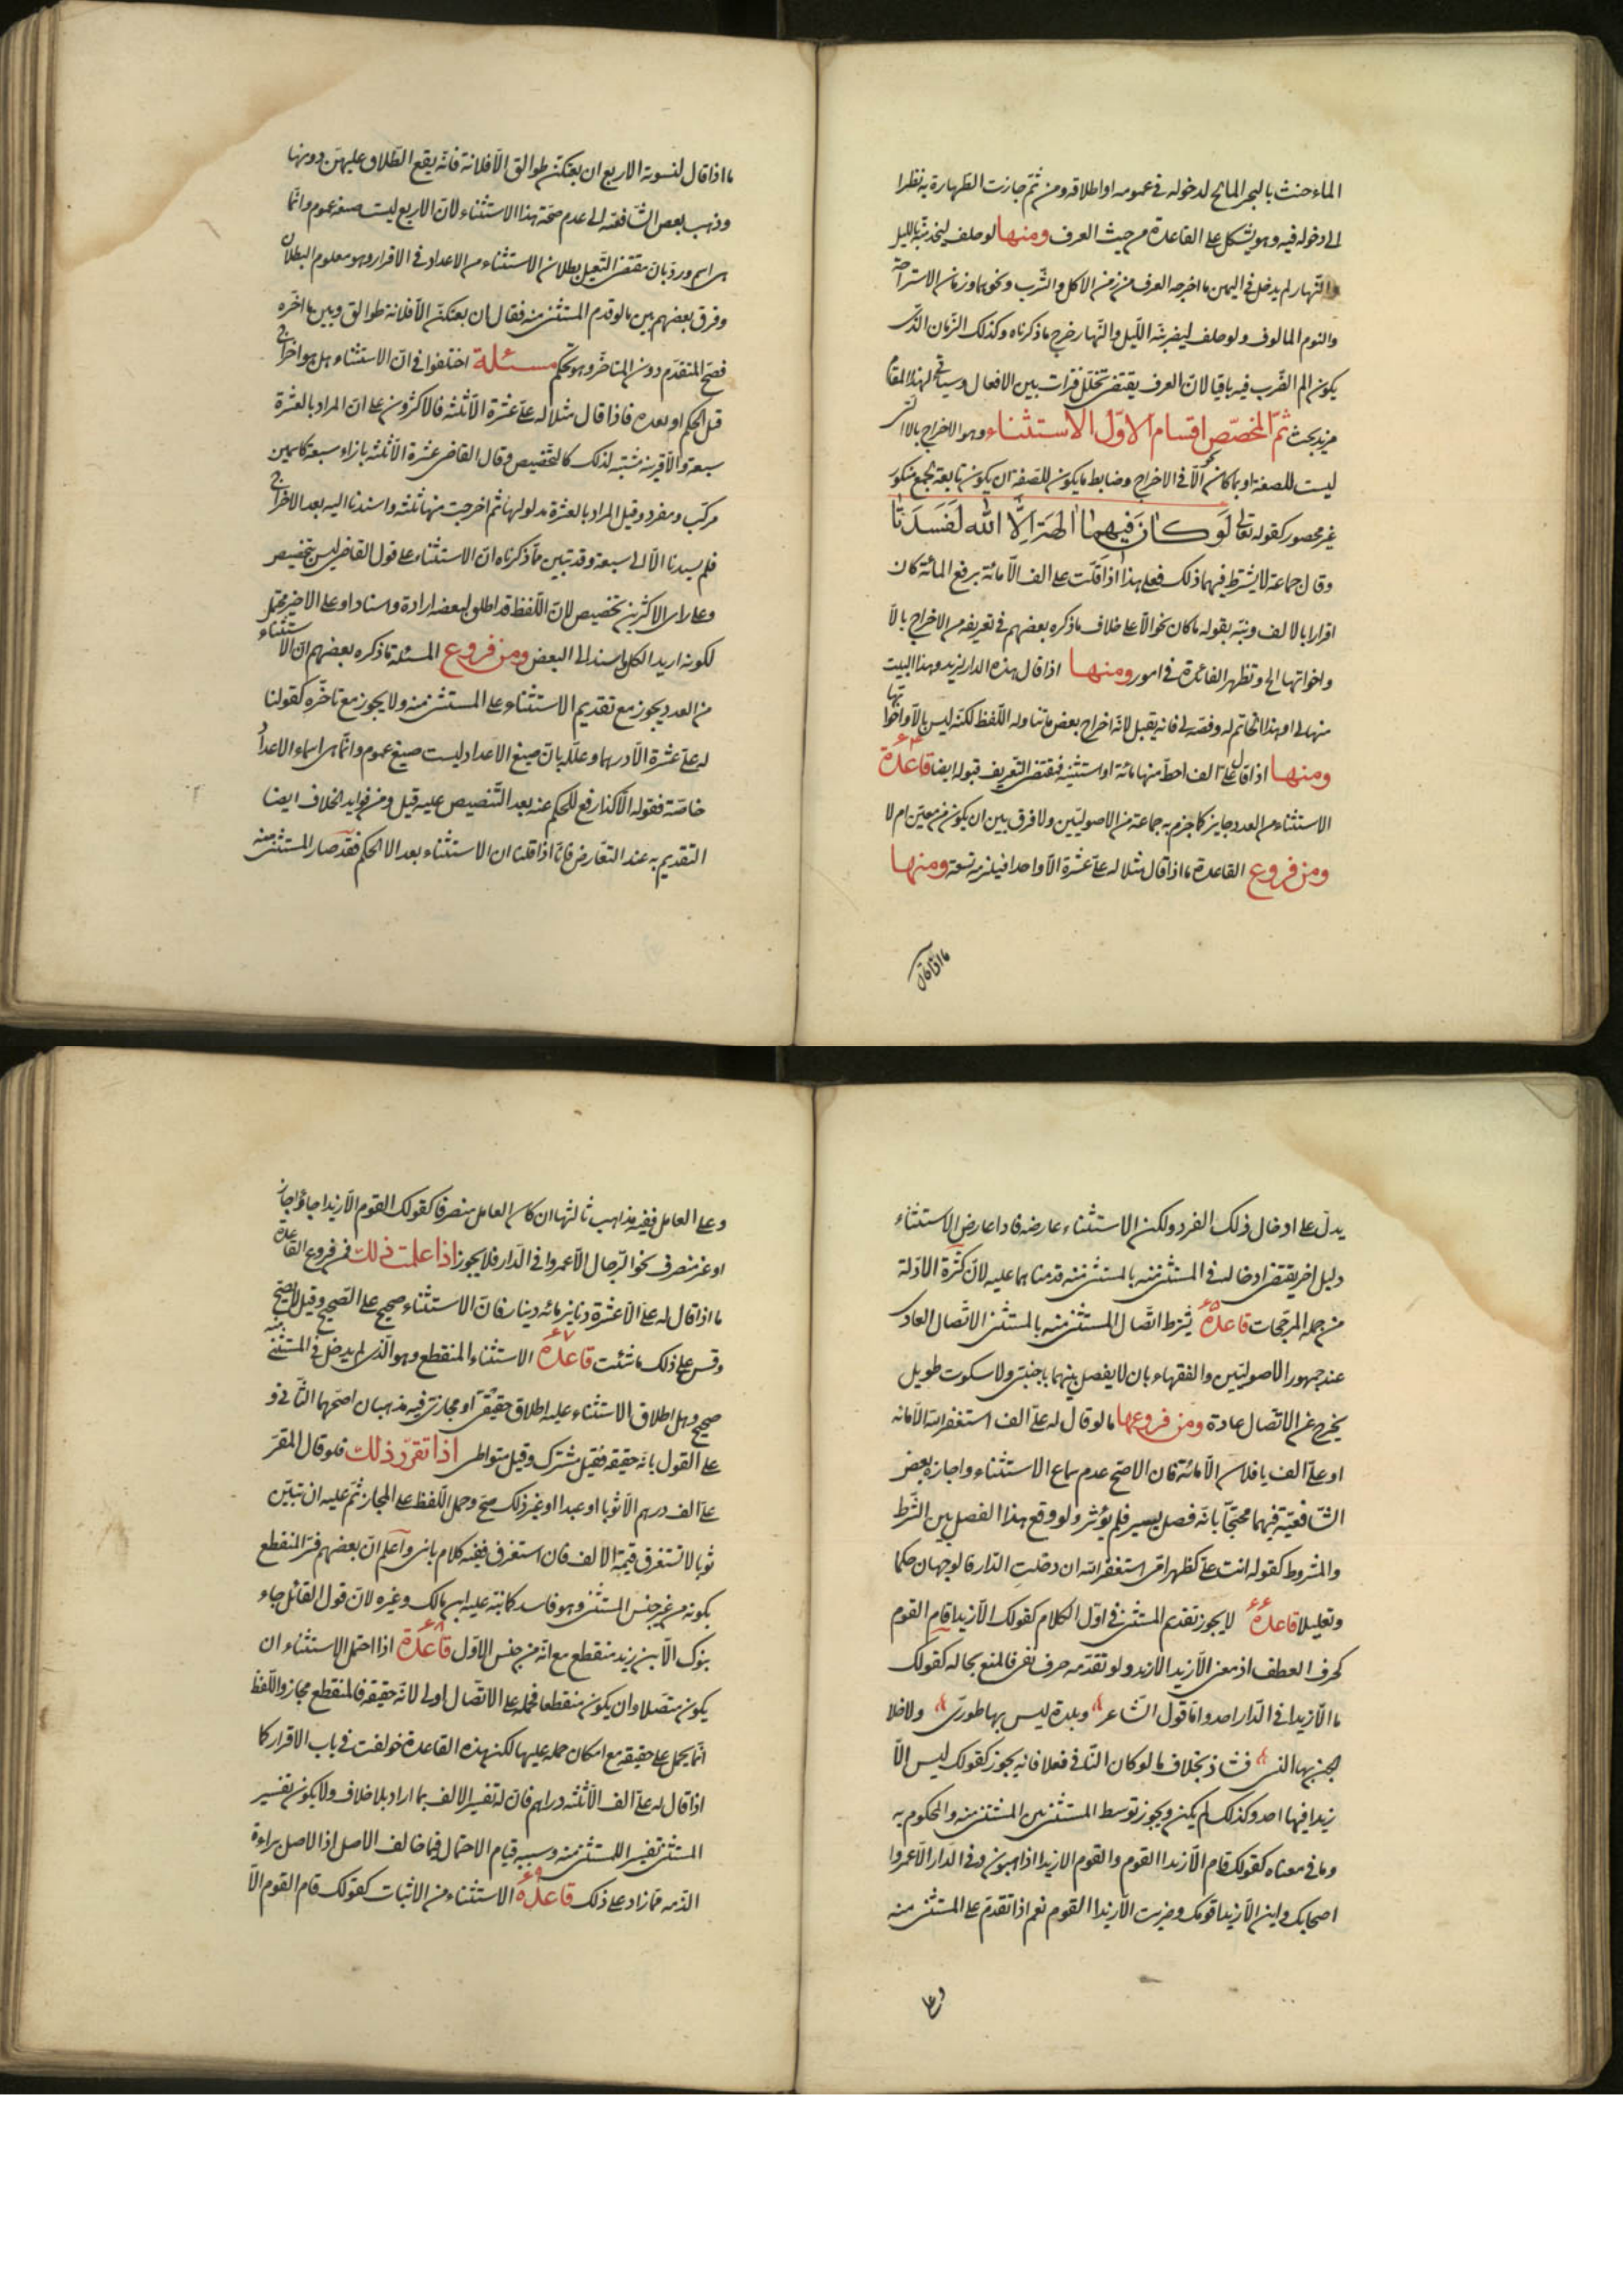 الماء حنث بالبحر المالح لدخوله في عمومه او اطلاقه ومن ثمّ جازت الطهارة به نظرا
الى دخوله فيه وهو يشكل على القاعدة من حيث العرف ومنها لو حلف ليخدمنّه بالليل
والنهار لم يدخل في اليمين ما اخرجه العرف من زمن الاكل والشرب ونحوهما وزمان الاستراحة
والنوم المألوف ولو حلف ليضربنّه اللّيل والنّهار خرج ما ذكرناه وكذلك الزّمان الذى
يكون الم الضّرب فيه باقيا لانّ العرف يقتضى تخلل فترات بين الافعال وسياتى لهذا المقام
مزيد بحث ثمّ المخصّص اقسام الاوّل الاستثناء وهو الاخراج بالا التى
ليست للصفة او بما كان نحو الّا فى الاخراج وضابط ما يكون للصفة ان يكون تابعة لجمع منكور
غير محصور كقوله تعالى لَو كانَ فيهما الهة اِلّا الله لَفَسَدَتا
وقال جماعة لا يشترط فيهما ذلك فعلى هذا اذا قلت على الف الّا مائة برفع المائة كان
اقرارا بالالف ونبّه بقوله ما كان نحو الّا على خلاف ما ذكره بعضهم فى تعريفه من الاخراج بالّا
واخواتها الخ وتظهر الفائدة فى امور ومنها اذا قال هذه الدار لزيد وهذا البيت
منها لى او هذا الخاتم له وفصّه لى فانه يقبل لانّه اخراج بعض ما تناوله اللّفظ لكنّه ليس بالّا واخواتها
ومنها اذا قال له علىّ الف احطّ منها مائة او استثنيه فمقتضى التعريف قبوله ايضا قاعدة ٦٤
الاستثناء من العدد جايز كما جزم به جماعة من الاصوليّين ولا فرق بين ان يكون من معيّن ام لا
ومن فروع القاعدة ما اذا قال مثلا له علىّ عشرة الّا واحدا فيلزمه تسعة ومنها
ما اذا قال
ما اذا قال لنسوته الاربع ان بعتكنّ طوالق الّا فلانة فانّه يقع الطّلاق عليهنّ دونها
وذهب بعض الشّافعيّة الى عدم صحّة هذا الاستثناء لانّ الاربع ليست صيغة عموم وانّما
هى اسم وردّ بانّ مقتضى التعليل بطلان الاستثناء من الاعداد فى الاقرار وهو معلوم البطلان
وفرق بعضهم بين ما لو قدم المستثنى منه فقال ان بعتكنّ الّا فلانة طوالق وبين ما اخّره
فصحّ المتقدّم دون المتاخّر وهو تحكّم مسئلة اختلفوا فى انّ الاستثناء هل هو اخراج
قبل الحكم او بعده فاذا قال مثلا له علىّ عشرة الّا ثلثة فالاكثرون على انّ المراد بالعشرة
سبعة والّا قرينة مثبتة لذلك كالتّخصيص وقال القاضى عشرة الّا ثلثة بازاء سبعة كاسمين
مركّب ومفرد وقيل المراد بالعشرة مدلولها ثم اخرجت منها ثلثة واسندنا اليه بعد الاخراج
فلم يسند الّا الى سبعة وقد تبيّن ممّا ذكرناه انّ الاستثناء على قول القاضى ليس بتخصيص
وعلى راى الاكثرين تخصيص لانّ اللّفظ قد اطلق لبعضه ارادة واسنادا وعلى الاخير محتمل
لكونه اريد الكلّ واسند الى البعض ومن فروع المسئلة ما ذكره بعضهم انّ الاستثناء
من العدد يجوز مع تقديم الاستثناء على المستثنى منه ولا يجوز مع تاخّره كقولنا
له علىّ عشرة الّا درهما وعلّله بانّ صيغ الاعداد ليست صيغ عموم وانّما هى اسماء الاعداد
خاصّة فقوله الّا كذا رفع للحكم عنه بعد التّنصيص عليه قيل ومن فوايد الخلاف ايضا
التقديم به عند التعارض فانّا اذا قلنا ان الاستثناء بعد الحكم فقد صار المستثنى منه
يدلّ على ادخال ذلك الفرد ولكن الاستثناء عارضه فاذا عارض الاستثناء
دليل اخر يقتضى ادخاله فى المستثنى منه بالمستثنى منه قدمناهما عليه لانّ كثرة الادلّة
من جملة المرجّحات قاعدة ٦٥ يشترط اتّصال المستثنى منه بالمستثنى الاتّصال العادى
عند جمهور الاصوليّين والفقهاء بان لا يفصل بينهما باجنبىّ ولا سكوت طويل
يخرج عن الاتصال عادة ومن فروعها ما لو قال له علىّ الف استغفر الله الّا مائة
او علىّ الف يا فلان الّا مائة فان الاصحّ عدم سماع الاستثناء واجازه بعض
الشافعيّة فيهما محتجّا بانّه فصل يسير فلم يؤثر ولو وقع هذا الفصل بين الشّرط
والمشروط كقوله انت علىّ كظهر امّى استغفر الله ان دخلت الدّار فالوجهان حكما
وتعليلا قاعدة ٦٦ لا يجوز تقديم المستثنى فى اوّل الكلام كقولك الّا زيدا قام القوم
كحرف العطف اذ معنى الّا زيدا لا زيد ولو تقدّمه حرف نفى فالمنع بحاله كقولك
ما الّا زيدا فى الدّار احد وامّا قول الشّاعر وبلدة ليس بها طورىّ ولا خلا
الجن بها انسى فشاذ بخلاف ما لو كان النّافى فعلا فانه يجوز كقولك ليس الّا
زيدا فيها احد وكذلك لم يكن ويجوز توسط المستثنى بين المستثنى منه والمحكوم به
وما فى معناه كقولك قام الّا زيدا القوم والقوم الا زيدا ذاهبون وفى الدّار الّا عمروا
اصحابك واين الا زيدا قومك وضربت الّا زيدا القوم نعم اذا تقدّم على المستثنى منه
وعلى
وعلى العامل ففيه مذاهب ثالثها ان كان العامل متصرفا كقولك القوم الّا زيدا جاؤا جاز
او غير متصرف نحو الرّجال الّا عمروا فى الدّار فلا يجوز اذا علمت ذلك فمن فروع القاعدة
ما اذا قال له علىّ الّا عشرة دنانير مائة دينار فانّ الاستثناء صحيح على الصّحيح وقيل لا يصحّ
وقس على ذلك ما شئت قاعدة ٦٧ الاستثناء المنقطع وهو الّذى لم يدخل فى المستثنى منه
صحيح وهل اطلاق الاستثناء عليه اطلاق حقيقىّ او مجازىّ فيه مذهبان اصحّهما الثّانى و
على القول بانّه حقيقة فقيل مشترك وقيل متواطى اذا تقرّر ذلك فلو قال المقرّ
علىّ الف درهم الّا ثوبا او عبدا او غير ذلك صحّ وحمل اللّفظ على المجاز ثمّ عليه ان تبيّن
ثوبا لا تستغرق قيمة الالف فان استغرق ففيه كلام ياتى واعلم انّ بعضهم فسّر المنقطع
بكونه من غير جنس المستثنى وهو فاسد كما نبّه عليه ابن مالك وغيره لانّ قول القائل جاء
بنوك الّا بن زيد منقطع مع انّه من جنس الاوّل قاعدة ٦٨ اذا احتمل الاستثناء ان
يكون متّصلا وان يكون منقطعا فحمله على الاتّصال اولى لانّه حقيقة فالمنقطع مجاز واللّفظ
انّما يحمل على حقيقة مع امكان حمله عليها لكن هذه القاعدة خولفت فى باب الاقرار كما
اذا قال له علىّ الف الّا ثلثة دراهم فان له تفسير الالف بما اراد بلا خلاف ولا يكون تفسير
المستثنى تفسيرا للمستثنى منه وسببه قيام الاحتمال فيما خالف الاصل اذ الاصل براءة
الذّمة ممّا زاد على ذلك قاعدة ٦٩ الاستثناء من الاثبات كقولك قام القوم الّا